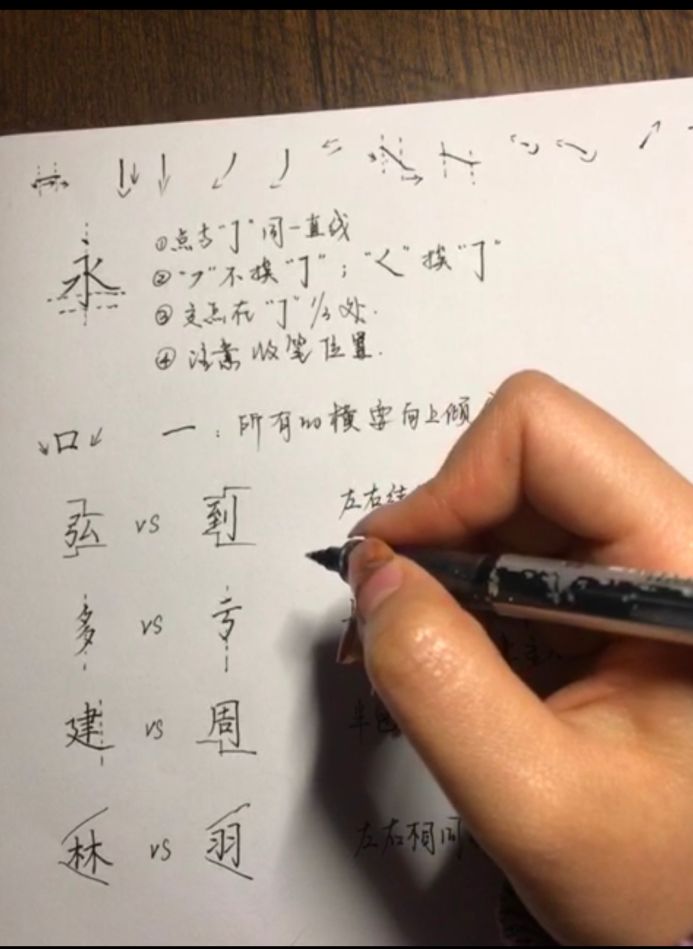 永
①点与"亅"同一直线
②"フ"不挨"亅"；"く"挨"亅"
③支点在"亅"1/3处.
④注意收笔位置.
口 一：所有的横要向上倾
弘 vs 到 左右结
多 vs 亨
建 vs 周 半
林 vs 羽 左右相同